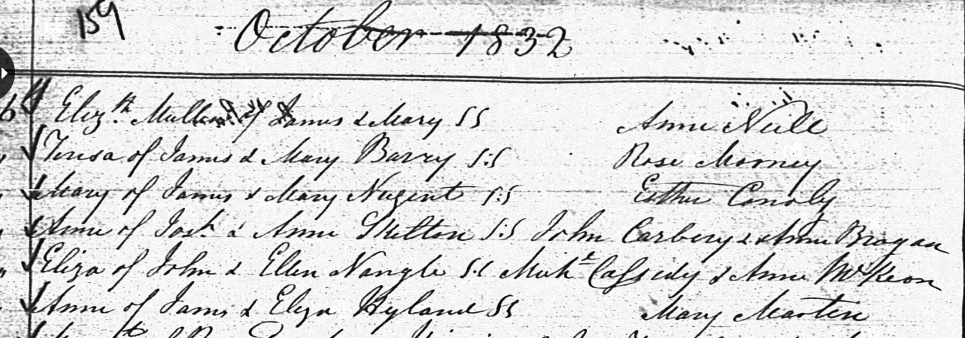 159
October 1832
6 Elizth Mullen of James & Mary SS Anne Neill
Teresa of James & Mary Barry S:S Rose Mooney
Mary of James & Mary Nugent S:S Esther Conoly
Anne of Josh & Anne Skelton S:S John Carbery & Anne Brogan
Eliza of John & Ellen Nangle S:S Michl Cassedy & Anne McKeon
Anne of James & Eliza Hyland SS Mary Martin